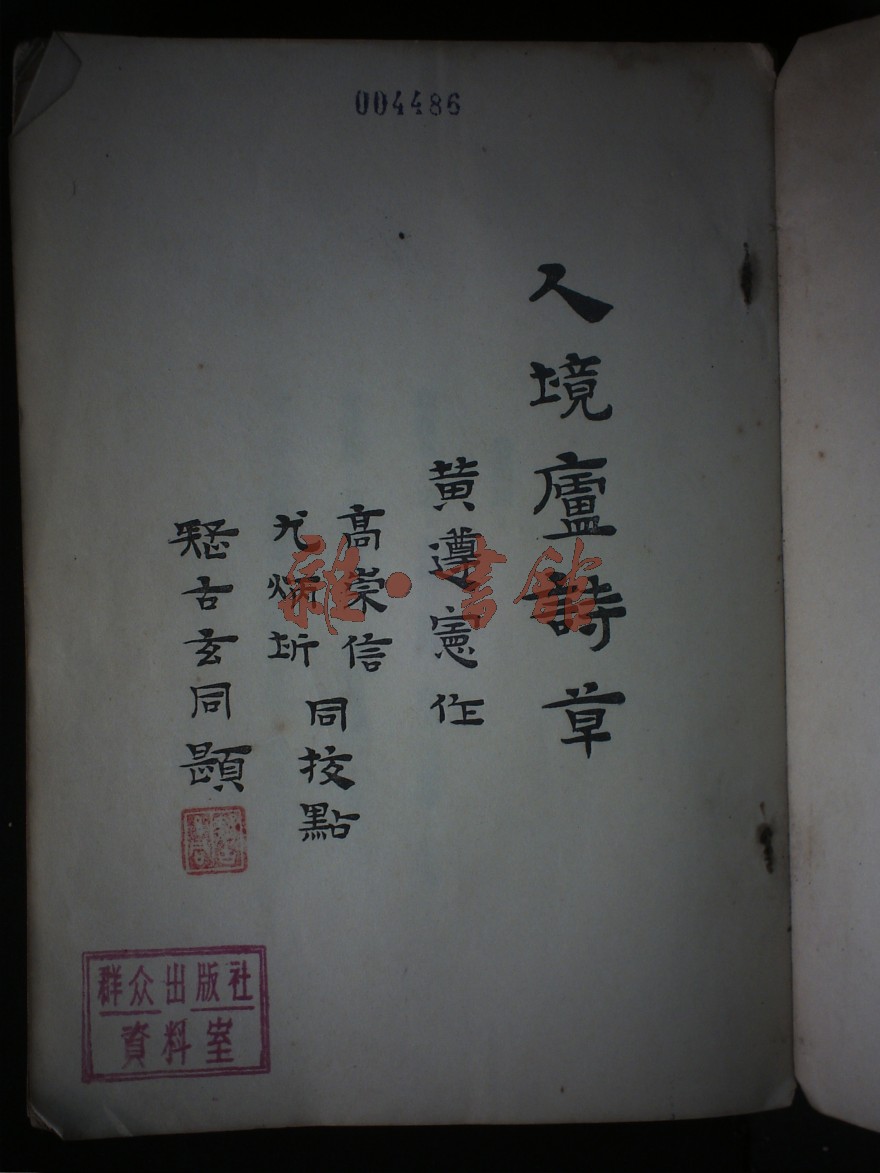 004486
人境廬詩草
黃遵憲作
高崇信
尤炳圻
同校點
疑古玄同題
群众出版社
資料室
雜·書館